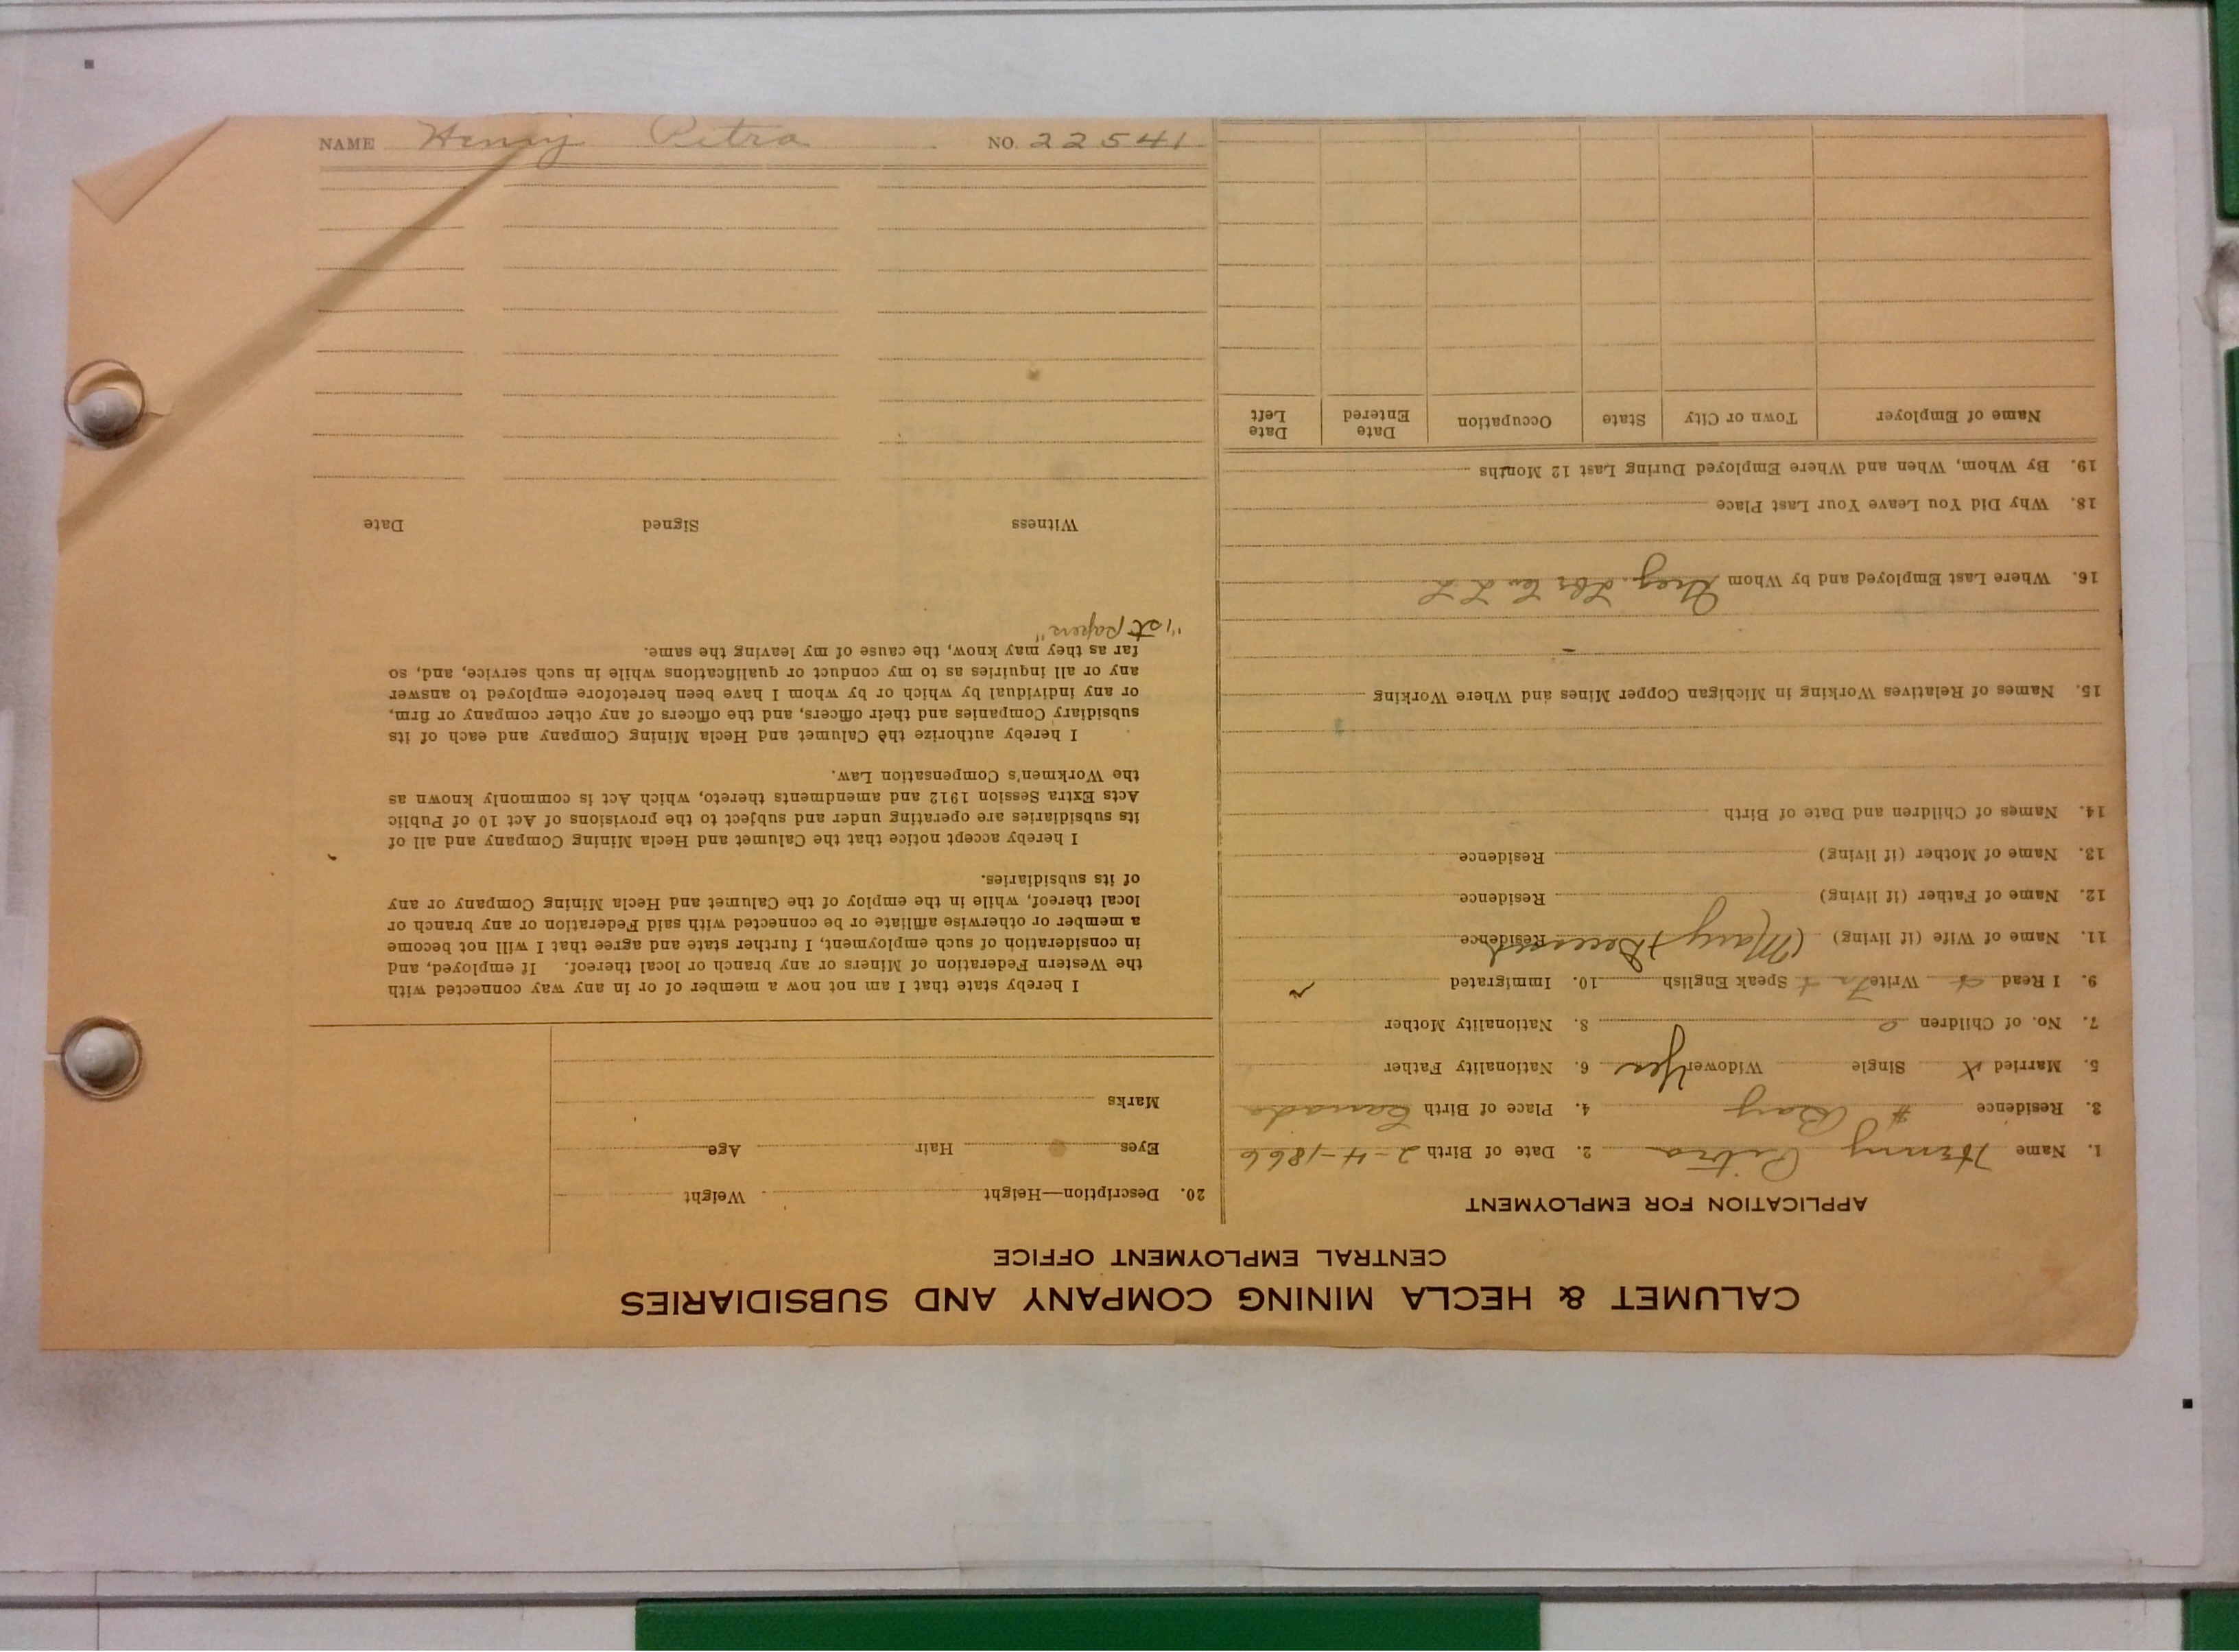 CALUMET & HECLA MINING COMPANY AND SUBSIDIARIES
CENTRAL EMPLOYMENT OFFICE
APPLICATION FOR EMPLOYMENT
1. Name Henry Petra 2. Date of Birth 2-4-1866
3. Residence # Bay 4. Place of Birth Canada
5. Married X Single Widower Yes 6. Nationality Father
7. No. of Children 0 8. Nationality Mother
9. I Read Write Speak English 10. Immigrated
11. Name of Wife (if living) (Mary Deceased Residence
12. Name of Father (if living) Residence
13. Name of Mother (if living) Residence
14. Names of Children and Date of Birth
15. Names of Relatives Working in Michigan Copper Mines and Where Working
16. Where Last Employed and by Whom Greg. Lbr Co L L
18. Why Did You Leave Your Last Place
19. By Whom, When and Where Employed During Last 12 Months
Name of Employer Town or City State Occupation Date Entered Date Left
20. Description—Height Weight
Eyes Hair Age
Marks
I hereby state that I am not now a member of or in any way connected with
the Western Federation of Miners or any branch or local thereof. If employed, and
in consideration of such employment, I further state and agree that I will not become
a member or otherwise affiliate or be connected with said Federation or any branch or
local thereof, while in the employ of the Calumet and Hecla Mining Company or any
of its subsidiaries.
I hereby accept notice that the Calumet and Hecla Mining Company and all of
its subsidiaries are operating under and subject to the provisions of Act 10 of Public
Acts Extra Session 1912 and amendments thereto, which Act is commonly known as
the Workmen's Compensation Law.
I hereby authorize the Calumet and Hecla Mining Company and each of its
subsidiary Companies and their officers, and the officers of any other company or firm,
or any individual by which or by whom I have been heretofore employed to answer
any or all inquiries as to my conduct or qualifications while in such service, and, so
far as they may know, the cause of my leaving the same.
"1st papers"
Witness Signed Date
NAME Henry Petra NO. 22541